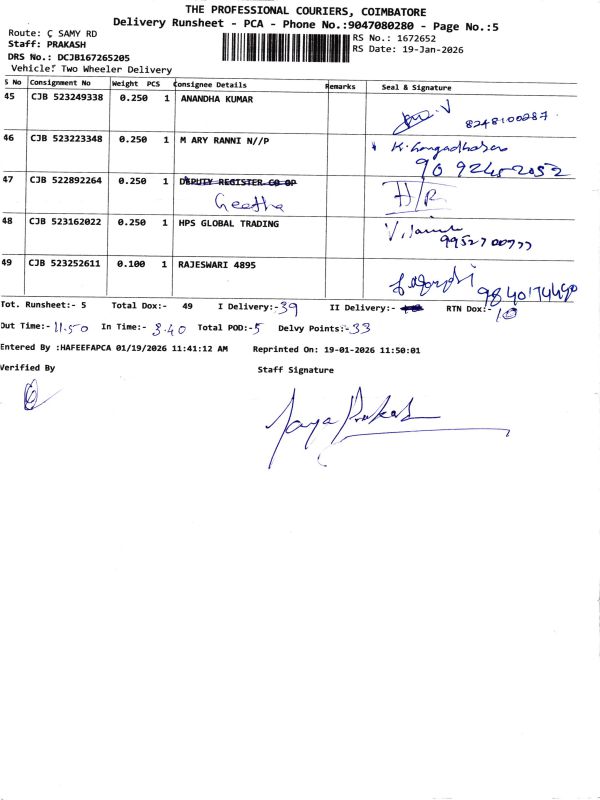 THE PROFESSIONAL COURIERS, COIMBATORE
Delivery Runsheet - PCA - Phone No.:9047080280 - Page No.:5
Route: C SAMY RD
RS No.: 1672652
Staff: PRAKASH
RS Date: 19-Jan-2026
DRS No.: DCJB167265205
Vehicle: Two Wheeler Delivery
S No Consignment No Weight PCS Consignee Details Remarks Seal & Signature
45 CJB 523249338 0.250 1 ANANDHA KUMAR
8248100287
46 CJB 523223348 0.250 1 M ARY RANNI N//P
47 CJB 522892264 0.250 1 DEPUTY REGISTER CO OP H/R
Geetha
48 CJB 523162022 0.250 1 HPS GLOBAL TRADING
49 CJB 523252611 0.100 1 RAJESWARI 4895
Tot. Runsheet:- 5 Total Dox:- 49 I Delivery:-39 II Delivery:- RTN Dox:- 10
Out Time:- 11.50 In Time:- 3.40 Total POD:-5 Delvy Points:-33
Entered By :HAFEEFAPCA 01/19/2026 11:41:12 AM Reprinted On: 19-01-2026 11:50:01
Verified By Staff Signature
Jaya Prakash